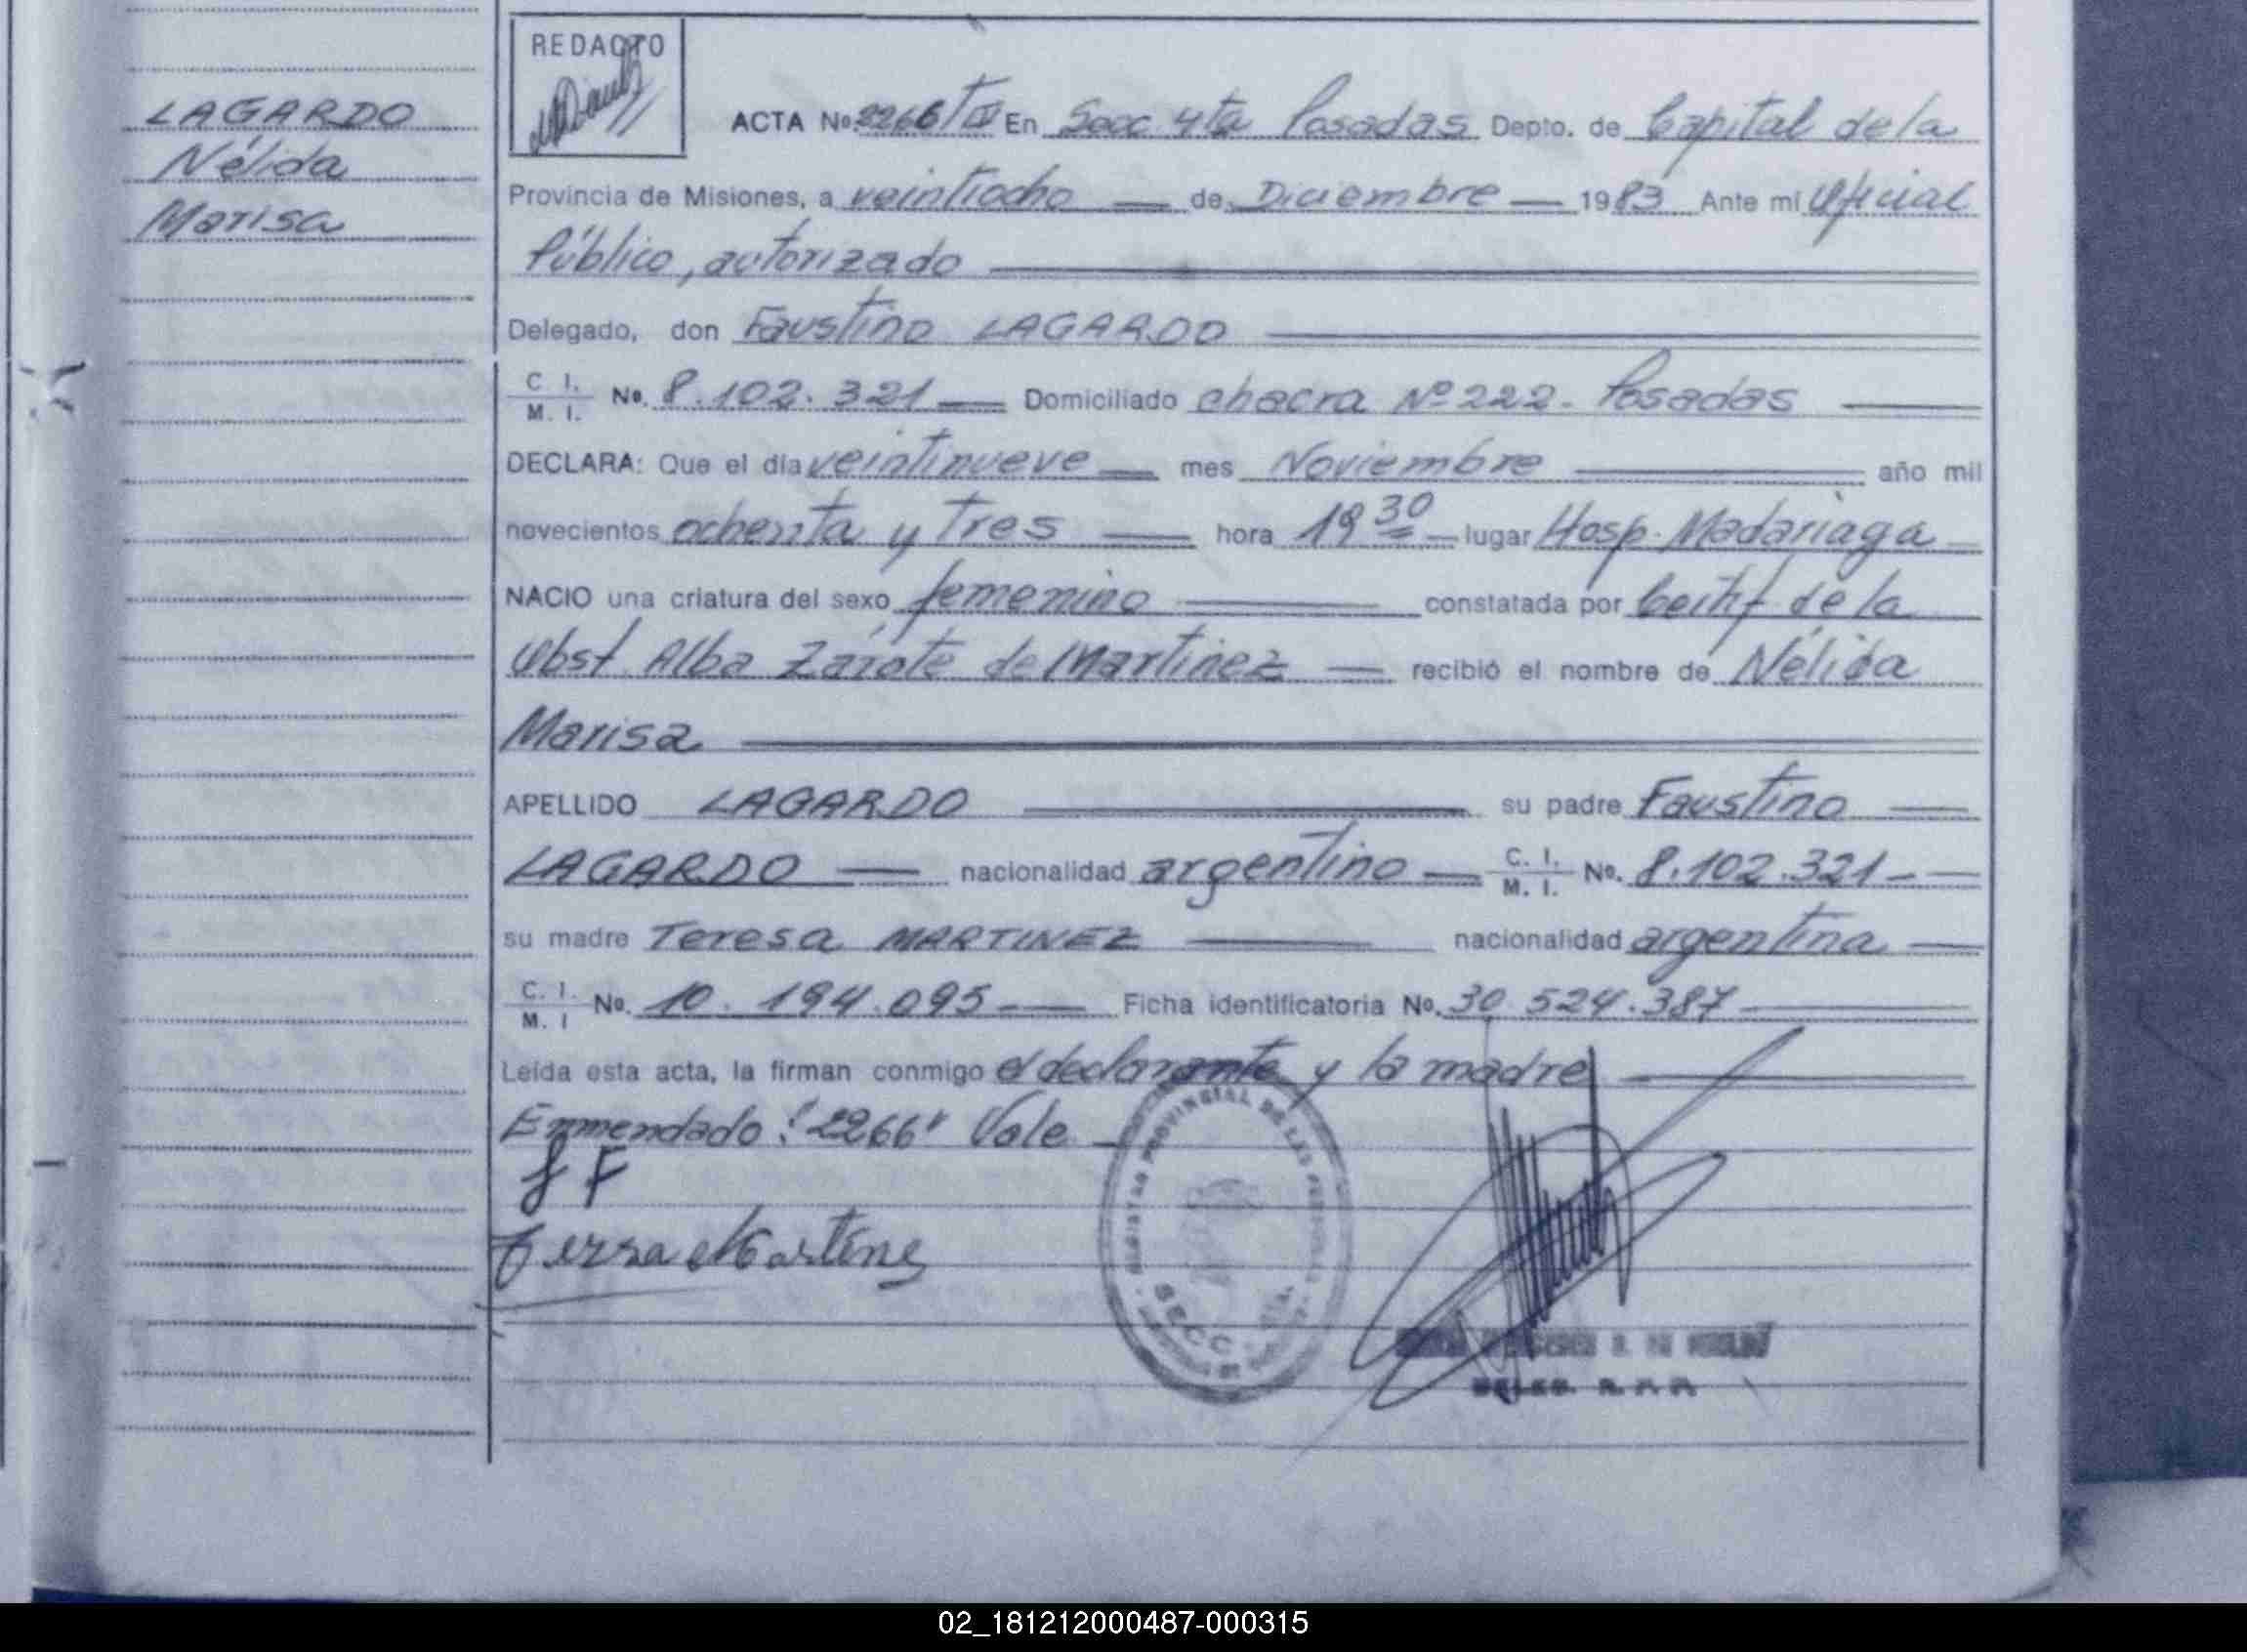 LAGARDO
Nélida
Marisa
REDACTO
ACTA No. 2266 T° III En Secc 4ta Posadas Depto. de Capital de la
Provincia de Misiones, a veintiocho — de Diciembre — 1983 Ante mi Oficial
Público, autorizado
Delegado, don Faustino LAGARDO
C I. M. I. No. 8.102.321 — Domiciliado chacra Nº 222 - Posadas
DECLARA: Que el día veintinueve — mes Noviembre — año mil
novecientos ochenta y tres — hora 19 30 — lugar Hosp. Madariaga
NACIO una criatura del sexo femenino — constatada por Certif de la
Obst. Alba Zárate de Martinez — recibió el nombre de Nélida
Marisa
APELLIDO LAGARDO — su padre Faustino
LAGARDO — nacionalidad argentino — C. I. M. I. No. 8.102.321 —
su madre Teresa MARTINEZ — nacionalidad argentina —
C. I. M. I No. 10.194.095 — Ficha identificatoria No. 30 524.387
Leída esta acta, la firman conmigo el declarante y la madre
Enmendado: "2266" Vale —
REGISTRO PROVINCIAL DE LAS PERSONAS
SECC. 4TA.
DELEG. R. P. P.
02_181212000487-000315